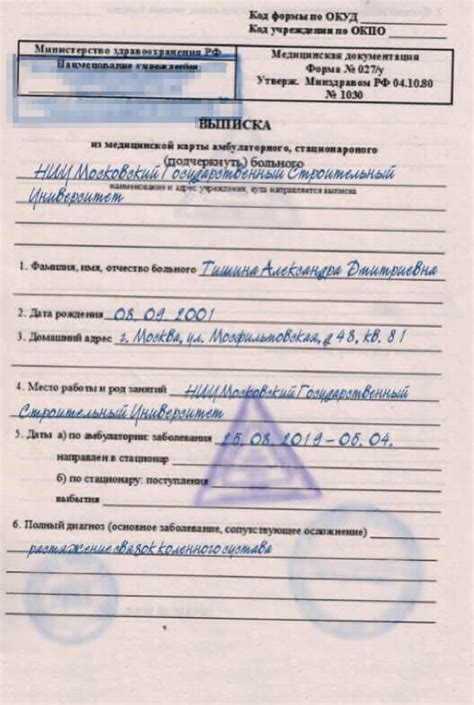 Код формы по ОКУД
Код учреждения по ОКПО
Министерство здравоохранения РФ
Наименование учреждения
Медицинская документация
Форма № 027/у
Утверж. Минздравом РФ 04.10.80
№ 1030
ВЫПИСКА
из медицинской карты амбулаторного, стационарного
(подчеркнуть) больного
НИУ Московский Государственный Строительный
наименование и адрес учреждения, куда направляется выписка
Университет
1. Фамилия, имя, отчество больного Тишина Александра Дмитриевна
2. Дата рождения 08. 09. 2001
3. Домашний адрес г. Москва, ул. Мосфильмовская, д 48, кв. 81
4. Место работы и род занятий НИУ Московский Государственный
Строительный Университет
5. Даты а) по амбулатории: заболевания 25. 08. 2019 - 05. 04.
направлен в стационар
б) по стационару: поступления
выбытия
6. Полный диагноз (основное заболевание, сопутствующее осложнение)
растяжение связок коленного сустава